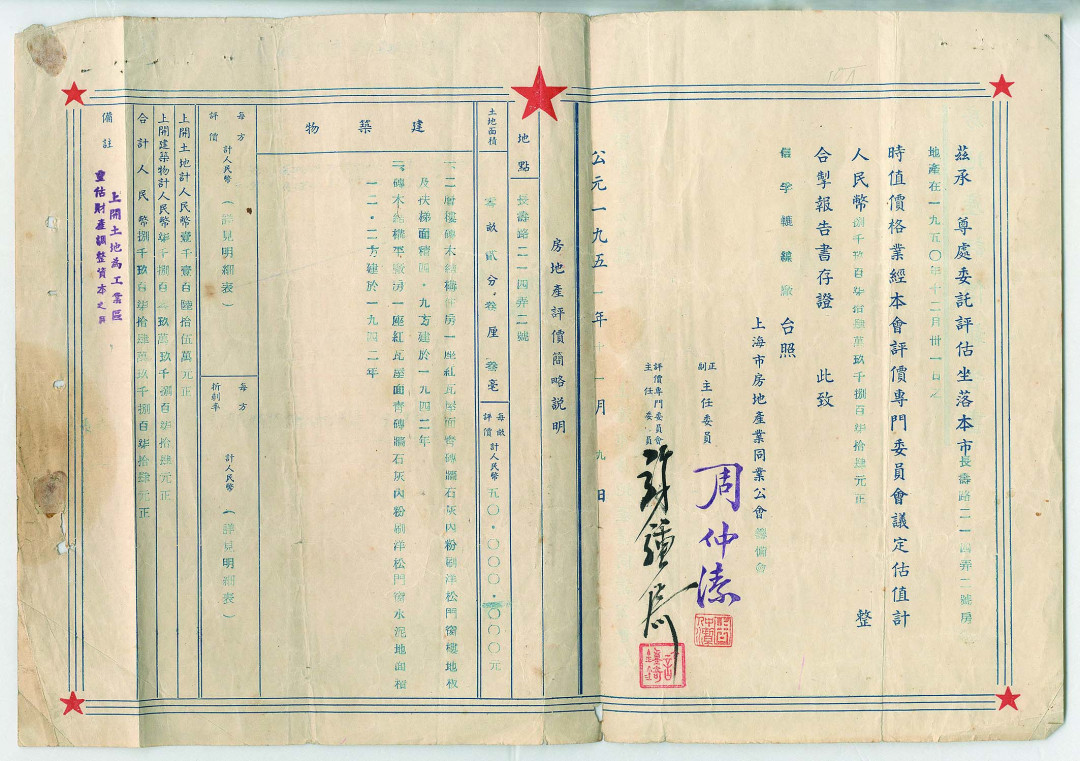 茲承　尊處委託評估坐落本市長壽路二一四弄二號房
地產在一九五〇年十二月卅一日之
時值價格業經本會評價專門委員會議定估值計
人民幣捌千玖百柒拾肆萬玖千捌百柒拾肆元正　整
合掣報告書存證　此致
台照
上海市房地產業同業公會籌備會
正副主任委員　周仲
評價專門委員會主任委員　許
公元一九五一年十一月九日
房地產評價簡略説明
地點　長壽路二一四弄二號
土地面積　零畝貳分叁厘叁毫　每畝評價　計人民幣五〇.〇〇〇.〇〇〇元
建築物
一、二層樓磚木結構住房一座紅瓦屋面青磚牆石灰內粉刷洋松門窗樓地板
及伏梯面積四.九方建於一九四二年
二、磚木結構平廠房一座紅瓦屋面青磚牆石灰內粉刷洋松門窗水泥地面積
一二.二方建於一九四二年
每方評價　計人民幣（詳見明細表）　每方折剩率　計人民幣（詳見明細表）
上開土地計人民幣壹千壹百陸拾伍萬元正
上開建築物計人民幣柒千捌百零玖萬玖千捌百柒拾肆元正
合計人民幣捌千玖百柒拾肆萬玖千捌百柒拾肆元正
備註　上開土地為工業區
重估財產調整資本之用